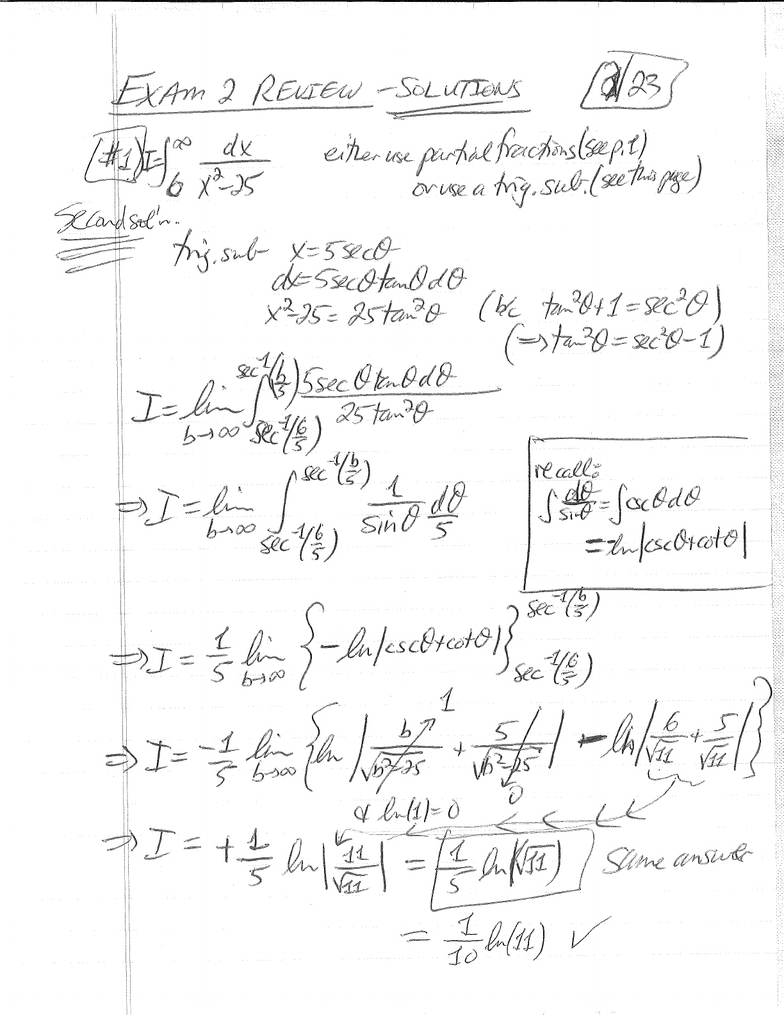 EXAM 2 REVIEW - SOLUTIONS 2/23
#1) I = ∫_6^∞ dx/(x²-25) either use partial fractions (see p.1)
or use a trig. sub. (see this page)
Second sol'n.
trig. sub x = 5 sec θ
dx = 5 sec θ tan θ dθ
x²-25 = 25 tan²θ (b/c tan²θ + 1 = sec²θ)
(⇒ tan²θ = sec²θ - 1)
I = lim_{b→∞} ∫_{sec⁻¹(6/5)}^{sec⁻¹(b/5)} 5 sec θ tan θ dθ / 25 tan²θ
⇒ I = lim_{b→∞} ∫_{sec⁻¹(6/5)}^{sec⁻¹(b/5)} 1/sin θ dθ/5
recall:
∫ dθ/sin θ = ∫ csc θ dθ
= -ln|csc θ + cot θ|
⇒ I = 1/5 lim_{b→∞} { -ln|csc θ + cot θ| }_{sec⁻¹(6/5)}^{sec⁻¹(b/5)}
⇒ I = -1/5 lim_{b→∞} { ln | b/√(b²-25) ↗ 1 + 5/√(b²-25) ↘ 0 | - ln | 6/√11 + 5/√11 | }
& ln(1) = 0
⇒ I = + 1/5 ln | 11/√11 | = 1/5 ln(√11) same answer
= 1/10 ln(11) ✓